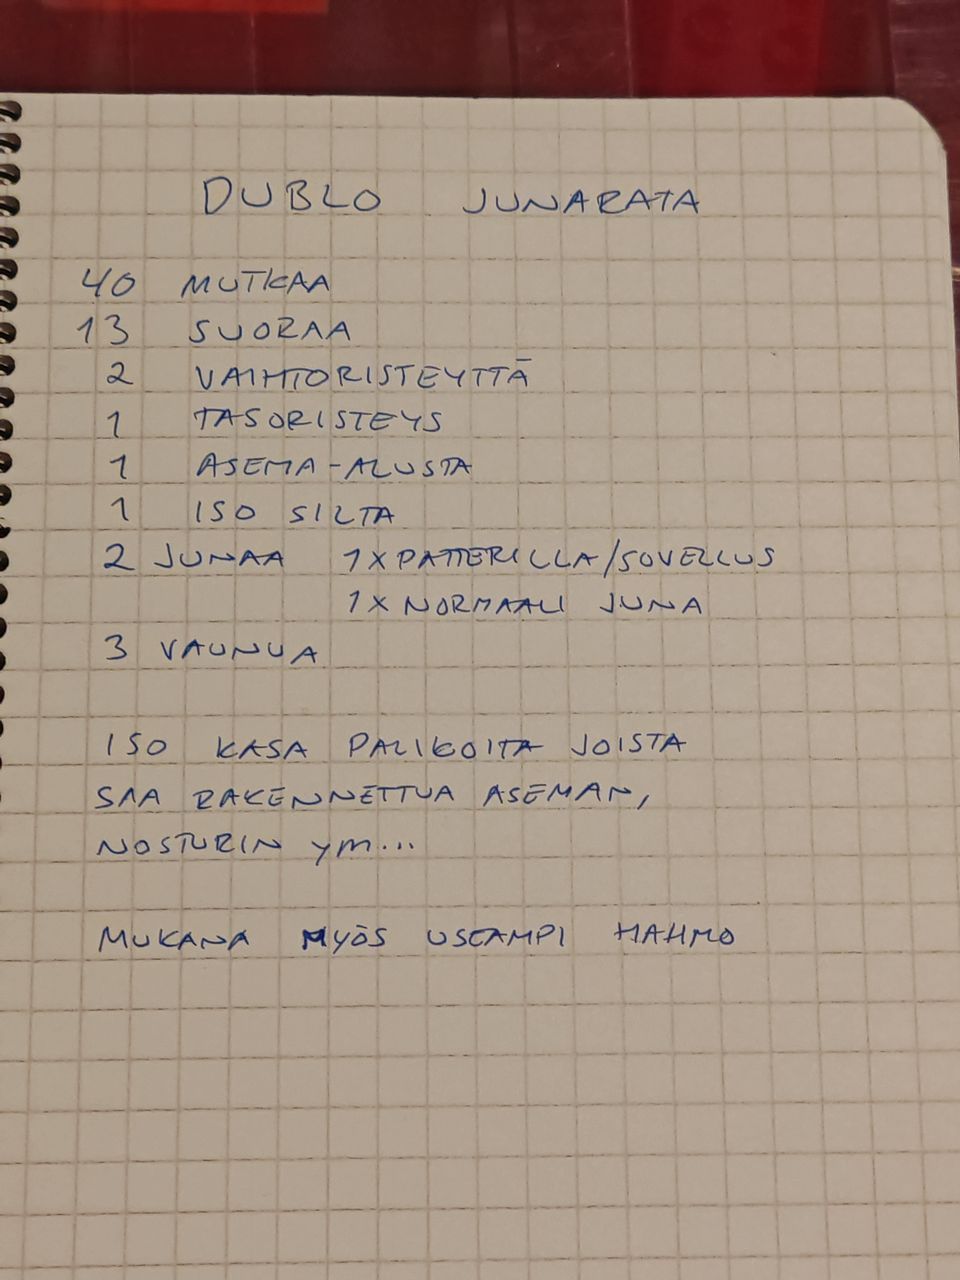 DUBLO JUNARATA
40 MUTKAA
13 SUORAA
2 VAIHTORISTEYTTÄ
1 TASORISTEYS
1 ASEMA-ALUSTA
1 ISO SILTA
2 JUNAA 1X PATTERILLA/SOVELLUS
1X NORMAALI JUNA
3 VAUNUA
ISO KASA PALIKOITA JOISTA
SAA RAKENNETTUA ASEMAN,
NOSTURIN YM...
MUKANA MYÖS USEAMPI HAHMO